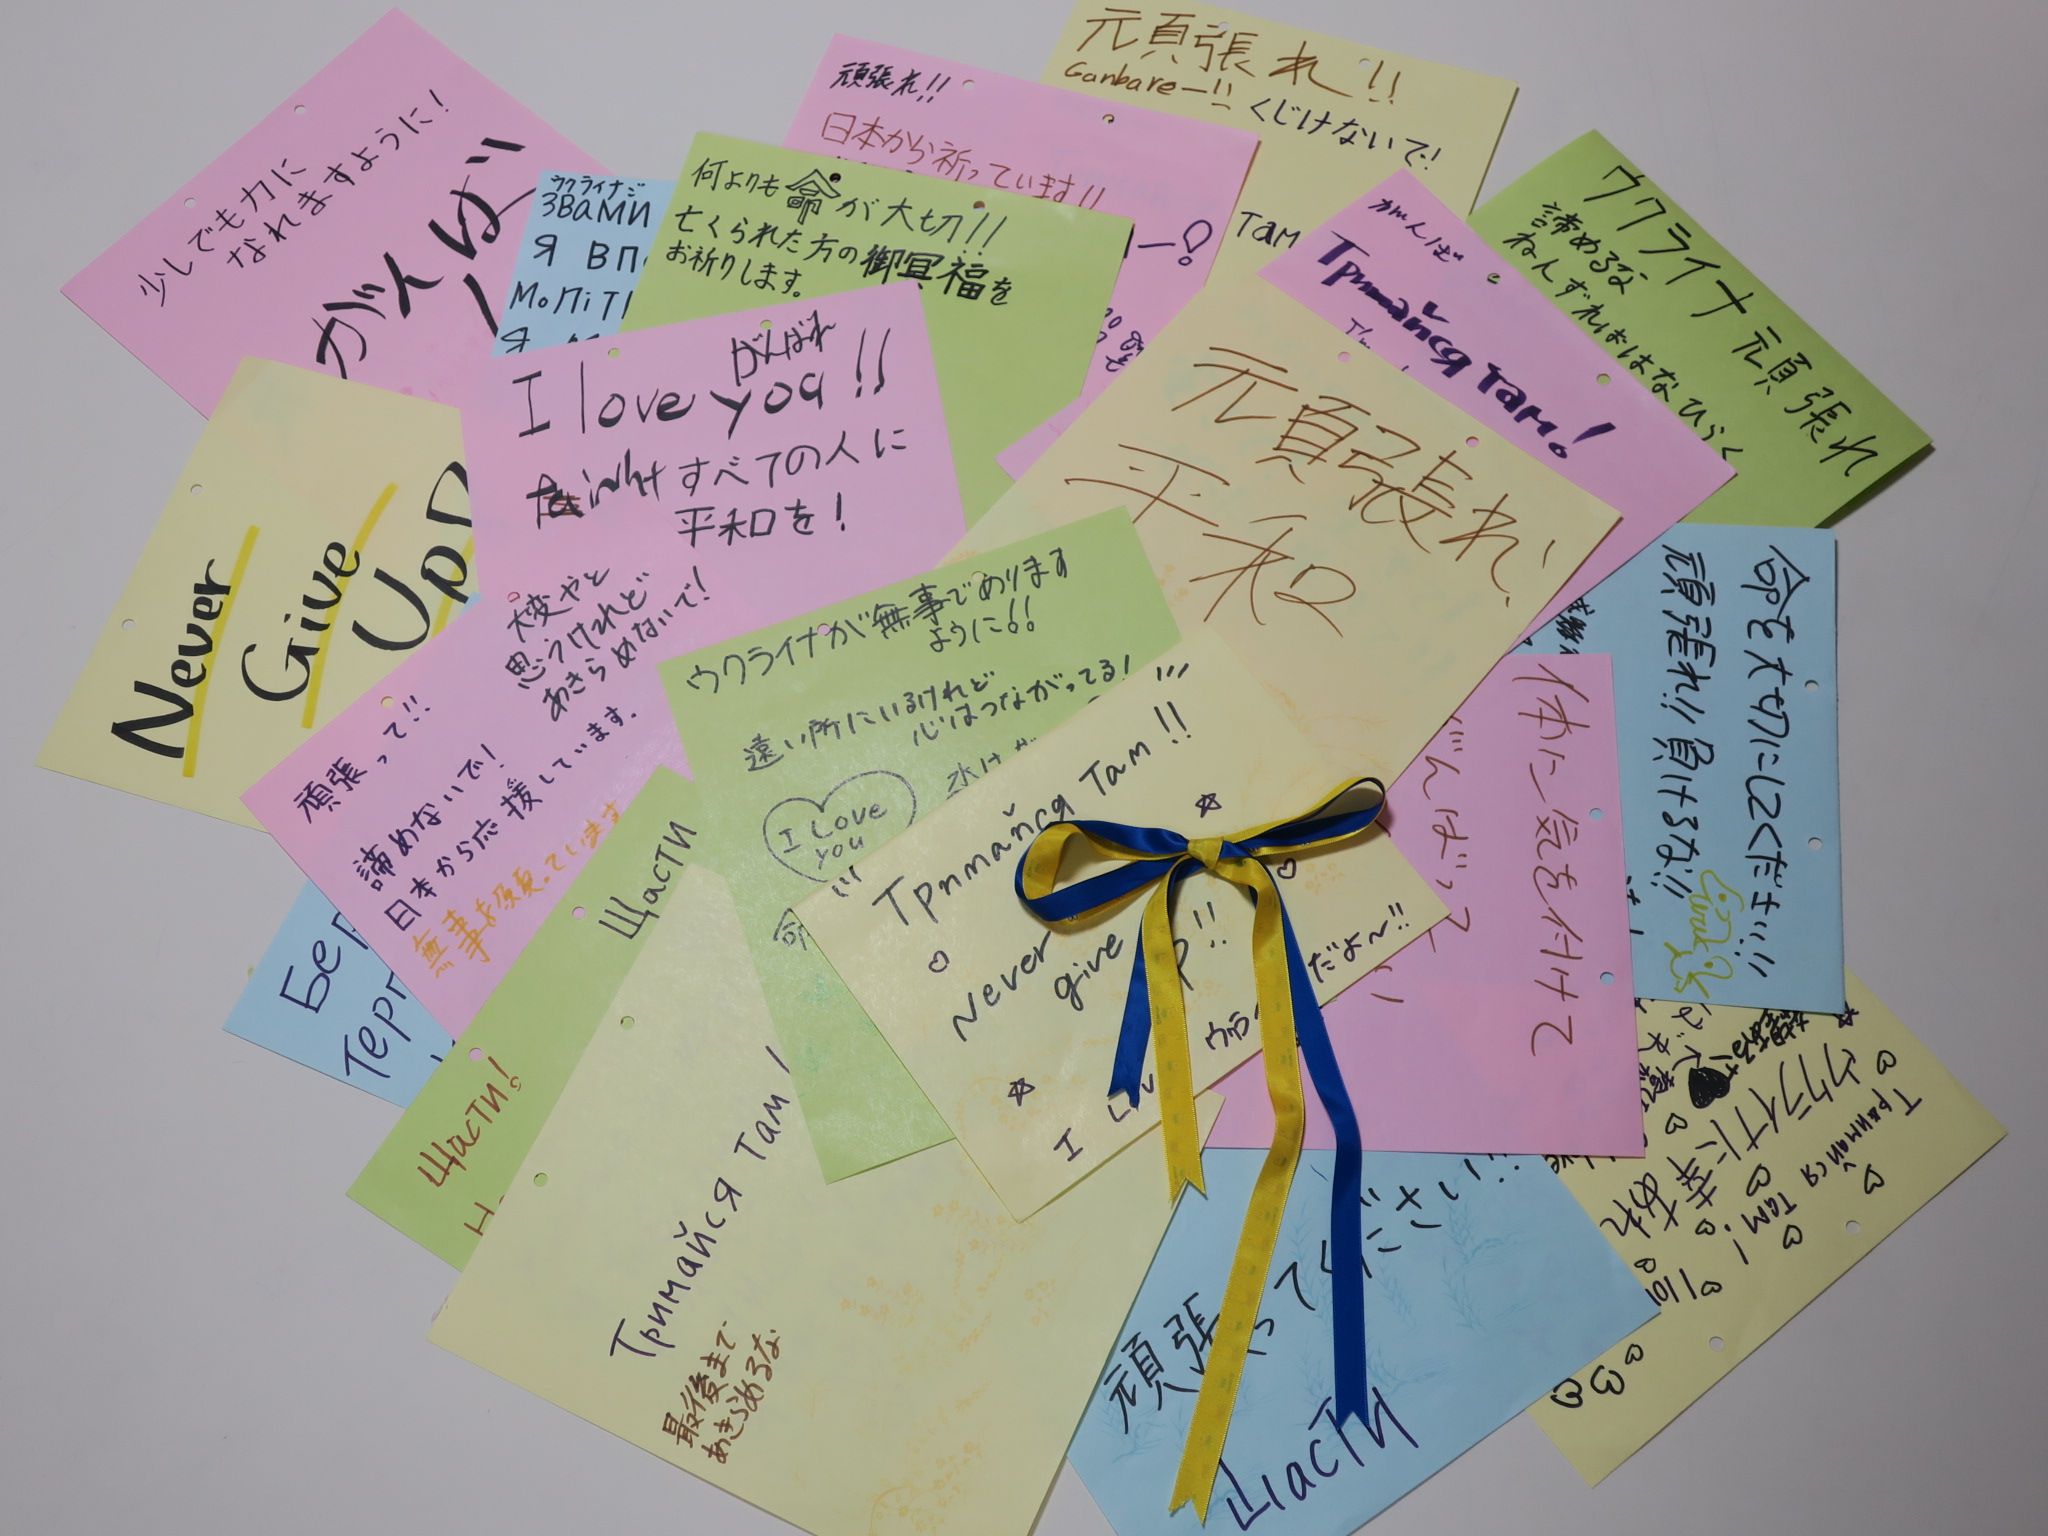 少しでも力に
なれますように！
がんば
頑張れ!!
日本から祈っています!!
頑張れ!!
Ganbareー!!
くじけないで!
Там
ウクライナ語
ЗВАМИ
Я ВП
МоПіТ
何よりも命が大切!!
亡くられた方の御冥福を
お祈りします。
がんば
Тримайся там!
ウクライナ 頑張れ
諦めるな
ねんずればはなひらく
I love you!!
がんばれ
すべての人に
平和を!
頑張れ、
平和
Never
Give
Up
大変やと
思うけれど
あきらめないで!
頑張って!!
諦めないで!
日本から応援しています.
無事を願っています
ウクライナが無事であります
ように!!
遠い所にいるけれど
心はつながってる!
I Love
you
命
命を大切にしてください!!
頑張れ!! 負けるな!!
体に気を付けて
がんばって
Бер
Терп
Щасти
Щасти!
Тримайся Там!!
Never
give
だよ〜!!
I
Тримайся там!
最後まで
あきらめるな
頑張ってください!!
Щасти
Тримайся там!
ウクライナに幸あれ